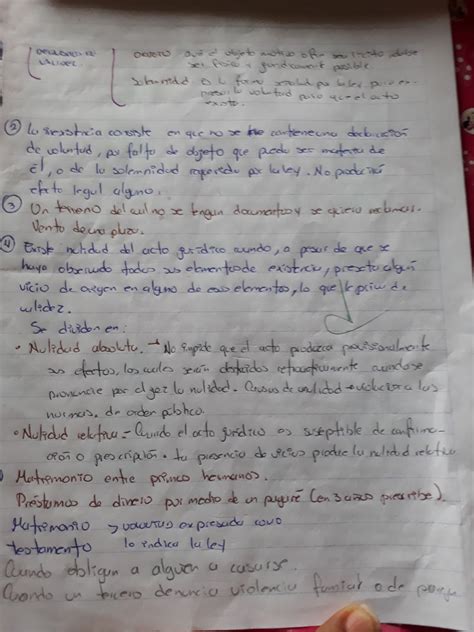 Objeto que el objeto motivo
ser física y jurídicamente posible.
Solemnidad o la forma señalada por la ley para ex-
presar la voluntad para que el acto
exista.
② La inexistencia consiste en que no se contiene una declaración
de voluntad, por falta de objeto que pueda ser materia de
él, o de la solemnidad requerida por la ley. No producirá
efecto legal alguno.
③ Un terreno del cual no se tengan documentos y se quiera
Venta de una plaza.
④ Existe nulidad del acto jurídico cuando, a pesar de que se
haya observado todos sus elementos de existencia, presenta algún
vicio de origen en alguno de esos elementos, lo que le priva de
validez.
Se dividen en:
• Nulidad absoluta. → No impide que el acto produzca provisionalmente
sus efectos, los cuales serán destruidos retroactivamente cuando se
pronuncie por el juez la nulidad. Causas de nulidad → a las
normas, de orden público.
• Nulidad relativa = Cuando el acto jurídico es suseptible de confirma-
ción o prescripción. La presencia de vicios produce la nulidad relativa
Matrimonio entre primos hermanos.
Préstamos de dinero por medio de un pagaré (en 3 años prescribe).
Matrimonio → expresada como
testamento lo indica la ley
Cuando obligan a alguien a casarse.
Cuando un tercero denuncia violencia familiar o de